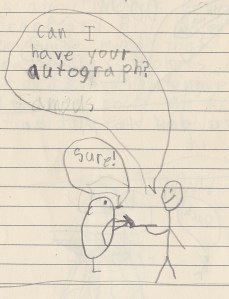 can I
have your
autograph?
Sure!